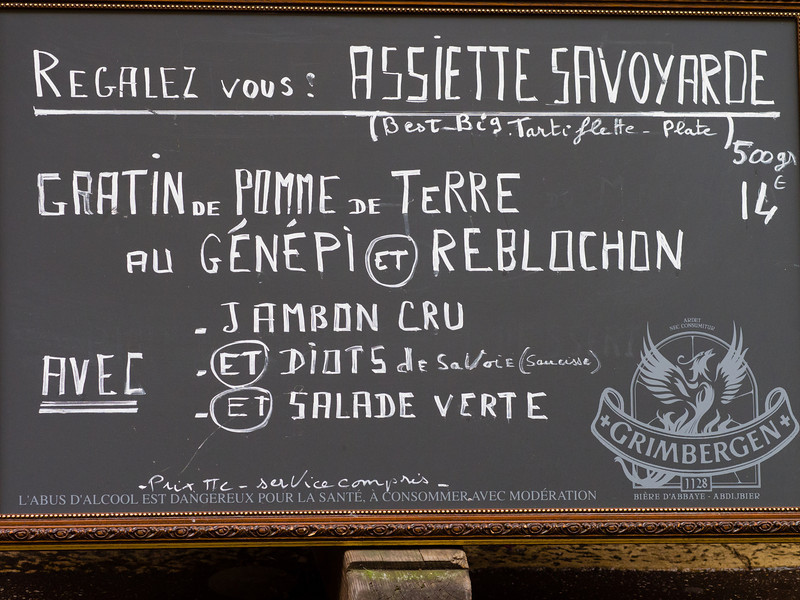 REGALEZ VOUS: ASSIETTE SAVOYARDE
(Best-Big.Tartiflette-Plate)
500gr
GRATIN DE POMME DE TERRE 14€
AU GÉNÉPI ET REBLOCHON
- JAMBON CRU
AVEC - ET DIOTS de SAVOIE (Saucisse)
- ET SALADE VERTE
ARDET NEC CONSUMITUR
GRIMBERGEN
1128
BIÈRE D'ABBAYE - ABDIJBIER
- Prix TTC - service compris -
L'ABUS D'ALCOOL EST DANGEREUX POUR LA SANTÉ, À CONSOMMER AVEC MODÉRATION